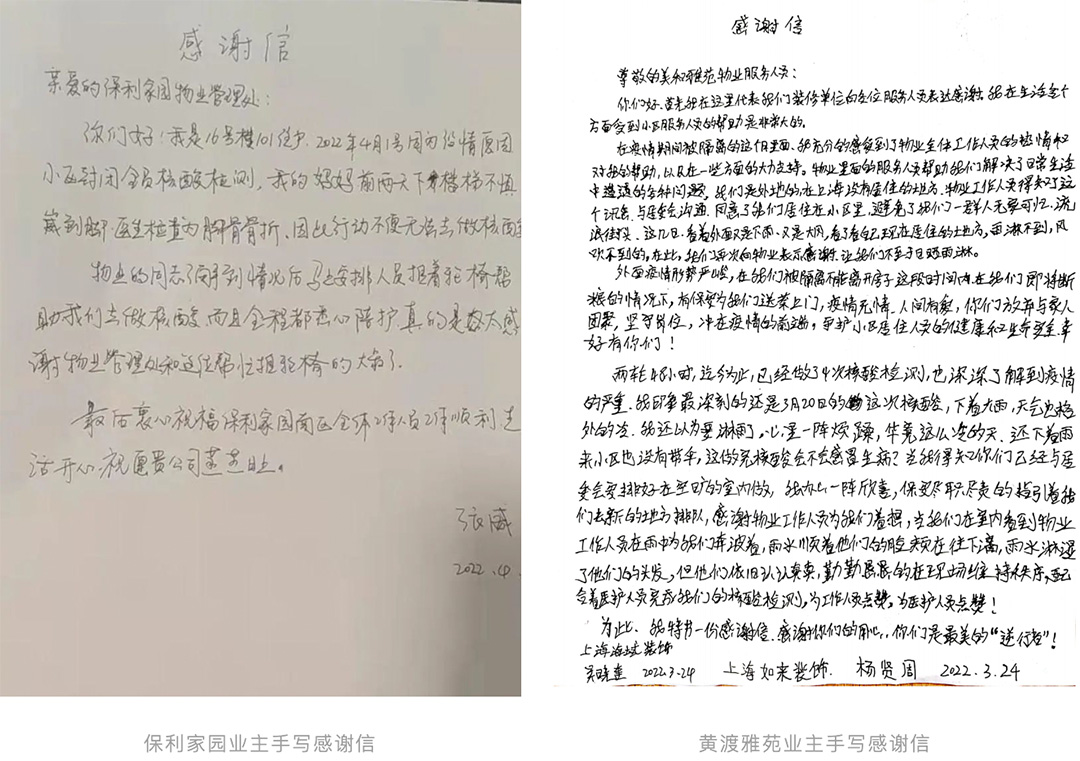 感谢信
亲爱的保利家园物业管理处:
你们好!我是16号楼101住户.2022年4月1号因为役情原因
小区封闭全员核酸检测,我的妈妈前两天下楼梯不慎
崴到脚.医生检查为脚骨骨折.因此行动不便无法去做核酸
物业的同志了解到情况后马上安排人员抬着轮椅帮
助我们去做核酸,而且全程都悉心陪护真的是太感
谢物业管理处和这位帮忙抬轮椅的大爷了.
最后衷心祝福保利家园南区全体工作人员工作顺利,生
活开心.祝愿贵公司蒸蒸日上。
张威
2022.4.
感谢信
尊敬的美和雅苑物业服务人员:
你们好.首先我在这里代表我们装修单位向各位服务人员表达感谢.我在生活各个
方面受到小区服务人员的帮助是非常大的.
在疫情期间被隔离的这个月里面、我充分的感受到了物业全体工作人员的热情和
对我的帮助,以及在一些方面的大力支持。物业里面的服务人员帮助我们解决了日常生活
中遭遇的各种问题,我们是外地的,在上海没有居住的地方.物业工作人员得知了这
个讯息.与居委会沟通.同意了我们居住在小区里.避免了我们一群人无家可归.流
浪街头.这几日.看着外面又是下雨.又是大风,看了看自己现在居住的地方,雨淋不到,风
吹不到的,在此,我们再次向物业表示感谢.让我们不至于日晒雨淋.
外面疫情形势严峻,在我们被隔离不能离开房子这段时间内在我们即将断
粮的情况下,有保安为我们送菜上门,疫情无情.人间有爱,你们放弃与家人
团聚,坚守岗位,冲在疫情的前端,守护小区居住人员的健康和生命安全.幸
好有你们!
两轮48小时,迄今为止,已经做了4次核酸检测,也深深了解到疫情
的严重.我印象最深刻的还是3月20日的这次核酸,下着大雨,天气也格
外的冷.我还以为要淋雨了,心里一阵烦躁,毕竟这么冷的天.还下着雨
来小区也没有带伞,这做完核酸会不会感冒生病?当我得知你们已经与居
委会安排好在空旷的室内做,我内心一阵欣喜,保安尽职尽责的指引着我
们去新的地方排队,感谢物业工作人员为我们着想,当我们在室内看到物业
工作人员在雨中为我们奔波着,雨水顺着他们的脸颊在往下滴,雨水淋湿
了他们的头发,但他们依旧认认真真,勤勤恳恳的在现场维持秩序,配
合着医护人员完成我们的核酸检测,为工作人员点赞,为医护人员点赞!
为此、我特书一份感谢信.感谢你们的用心,你们是最美的“逆行者”!
上海 装饰
2022.3.24 上海如来装饰. 杨贤周 2022.3.24
保利家园业主手写感谢信
黄渡雅苑业主手写感谢信